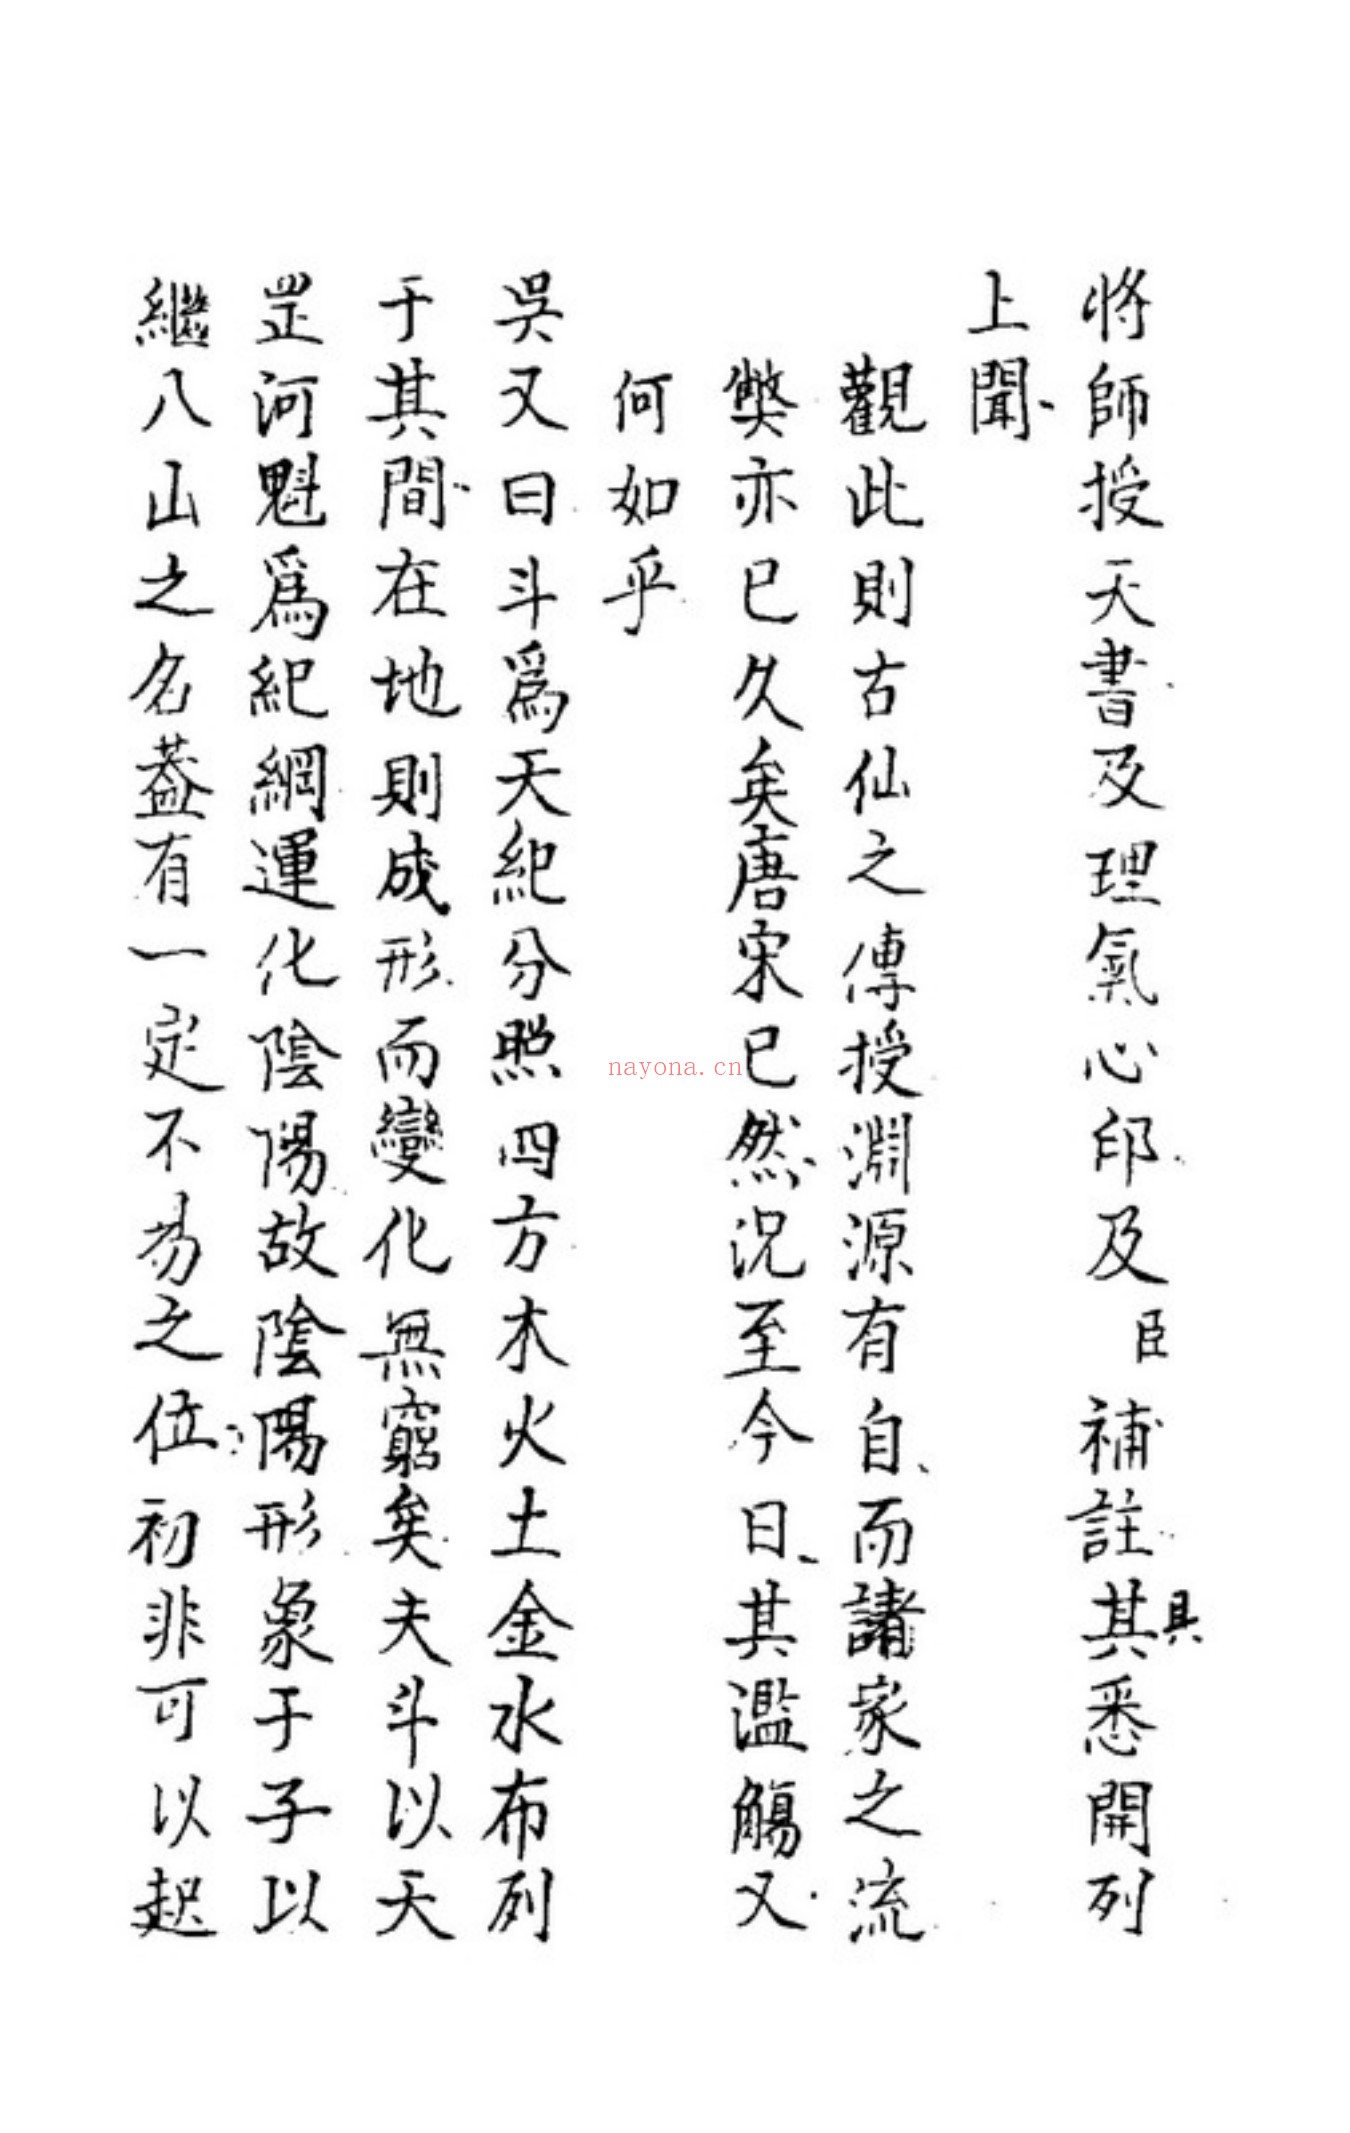 將師授天書及理氣心印及臣補註其具悉開列
上聞
觀此則古仙之傳授淵源有自而諸家之流
獘亦已久矣唐宋已然況至今日其濫觴又
何如乎
吳又曰斗爲天紀分照四方木火土金水布列
于其間在地則成形而變化無窮矣夫斗以天
罡河魁爲紀綱運化陰陽故陰陽形象于子以
繼八山之名葢有一定不易之位初非可以起
nayona.cn